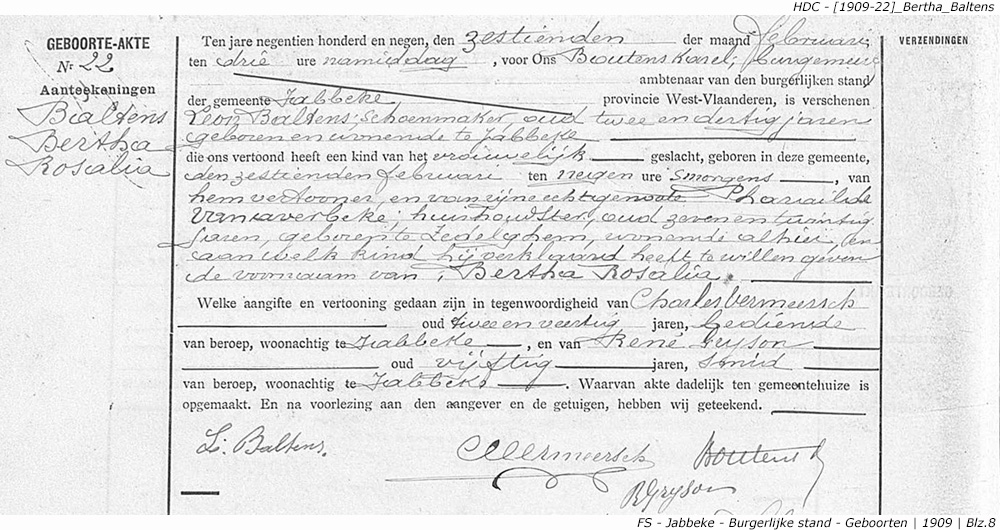 HDC - [1909-22]_Bertha_Baltens
GEBOORTE-AKTE
Nr 22
Aanteekeningen
Baltens
Bertha
Rosalia
VERZENDINGEN
Ten jare negentien honderd en negen, den zestienden der maand februari,
ten drie ure namiddag, voor Ons Boutens Karel, burgemeester
ambtenaar van den burgerlijken stand
der gemeente Jabbeke provincie West-Vlaanderen, is verschenen
Leon Baltens, schoenmaker, oud twee en dertig jaren
geboren en wonende te Jabbeke
die ons vertoond heeft een kind van het vrouwelijk geslacht, geboren in deze gemeente,
den zestienden februari ten negen ure smorgens, van
hem vertooner, en van zijne echtgenoote Pharaïlde
Vanhaverbeke, huishoudster, oud zeven en twintig
jaren, geboren te Zedelghem, wonende alhier, en
aan welk kind hij verklaard heeft te willen geven
de voornaam van, Bertha Rosalia.
Welke aangifte en vertooning gedaan zijn in tegenwoordigheid van Charles Vermeersch
oud twee en veertig jaren, bediende
van beroep, woonachtig te Jabbeke, en van René Gryson
oud vijftig jaren, smid
van beroep, woonachtig te Jabbeke. Waarvan akte dadelijk ten gemeentehuize is
opgemaakt. En na voorlezing aan den aangever en de getuigen, hebben wij geteekend.
L. Baltens.
CVermeersch
Boutens K
R Gryson
FS - Jabbeke - Burgerlijke stand - Geboorten | 1909 | Blz.8